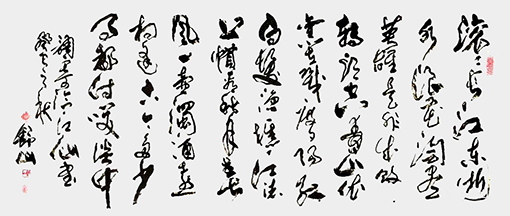 滚滚长江东逝
水浪花淘尽
英雄是非成败
转头空青山依
旧在几度夕阳红
白发渔樵江渚
上惯看秋月春
风一壶浊酒喜
相逢古今多少
事都付笑谈中
临江仙